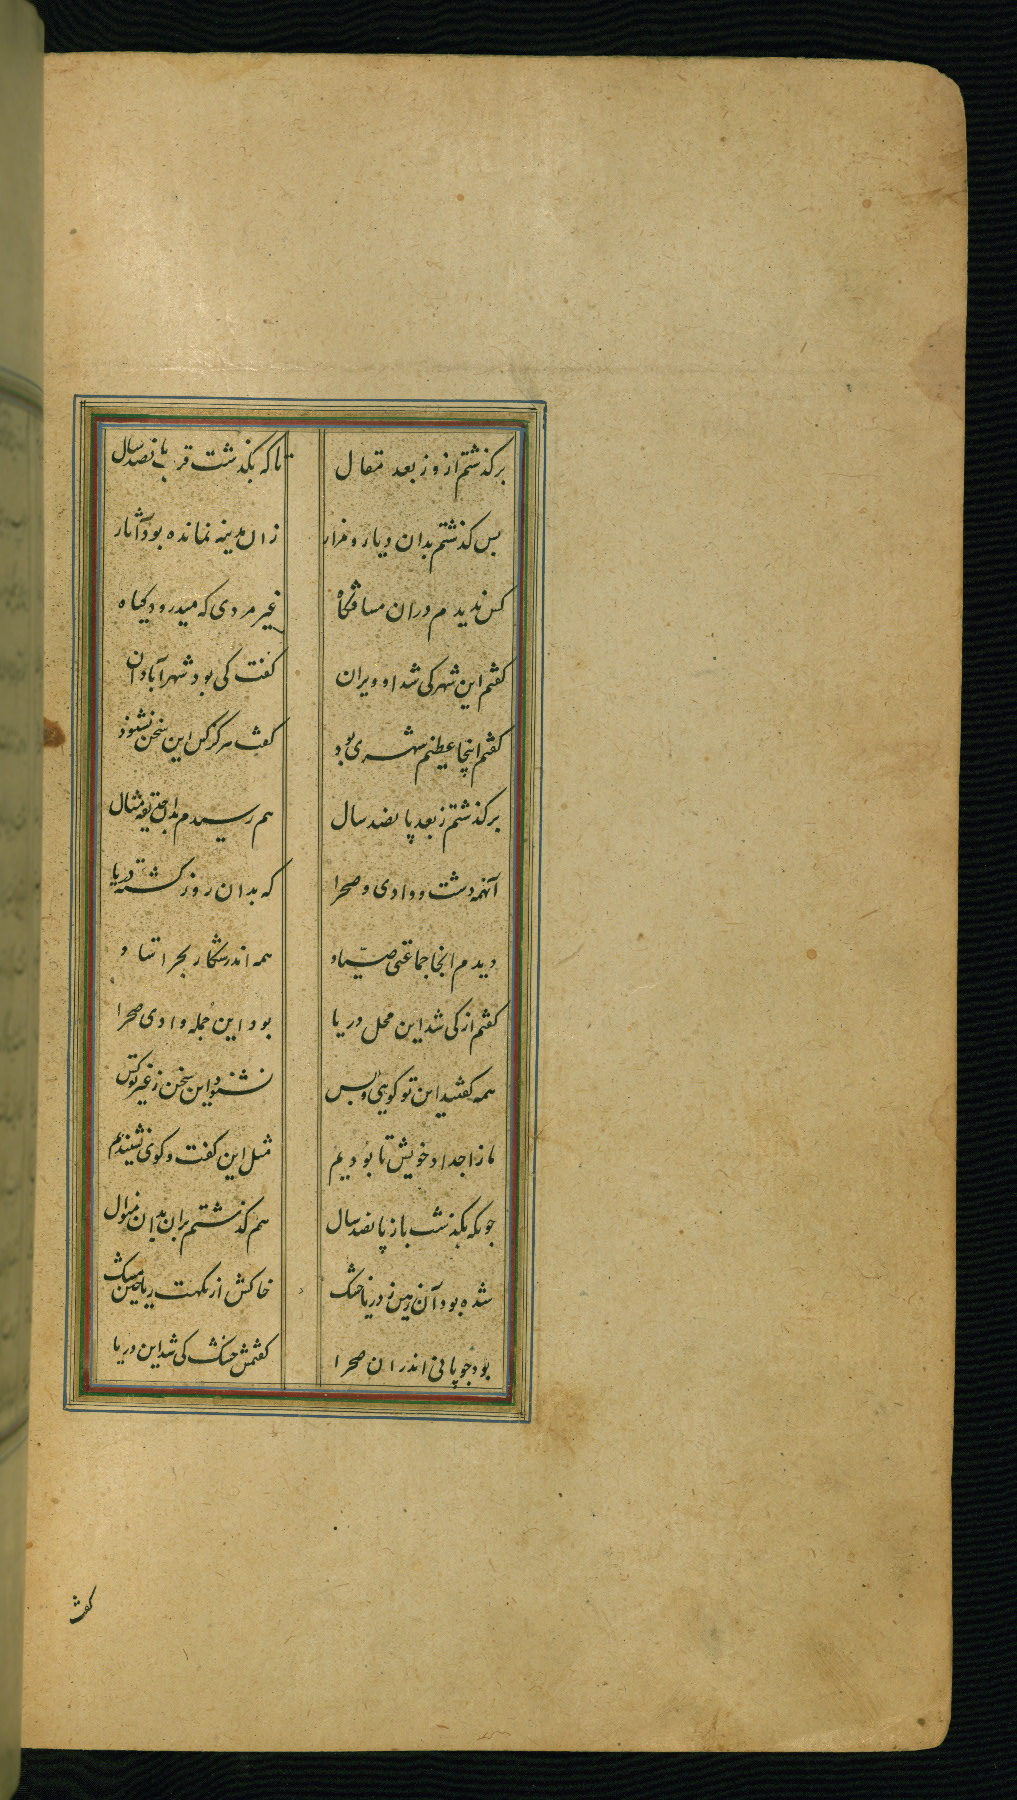 برکذشتم از و ز بعد مقال تا که بکذشت قرب پانصد سال
بس کذشتم بدان دیار و مزار زان مدینه نمانده بود آثار
کس ندیدم دران مسافتگاه غیر مردی که میدرود کیاه
کفتم این شهر کی شد او ویران کفت کی بود شهر آبادان
کفتم اینجا عظیم شهری بود کفت هرکز کس این سخن نشنود
برکذشتم ز بعد پانصد سال هم رسیدم بدان
آنهمه دشت و وادی و صحرا که بدان روز کشته دریا
دیدم انجا جماعتی صیاد همه اندر شکار بحر
کفتم از کی شد این محل دریا بود این جمله وادی صحرا
همه کفتند این تو کویی و بس نشنود این سخن ز غیر تو کس
ما ز اجداد خویش تا بودیم مثل این کفت و کوی نشنیدیم
چونکه بکذشت باز پانصد سال هم کذشتم بران بدان منوال
شده بود آن زمین دریا خشک خاکش از نکهت ریاحین مشک
بود چوپانی اندران صحرا کفتمش خشک کی شد این دریا
کفت